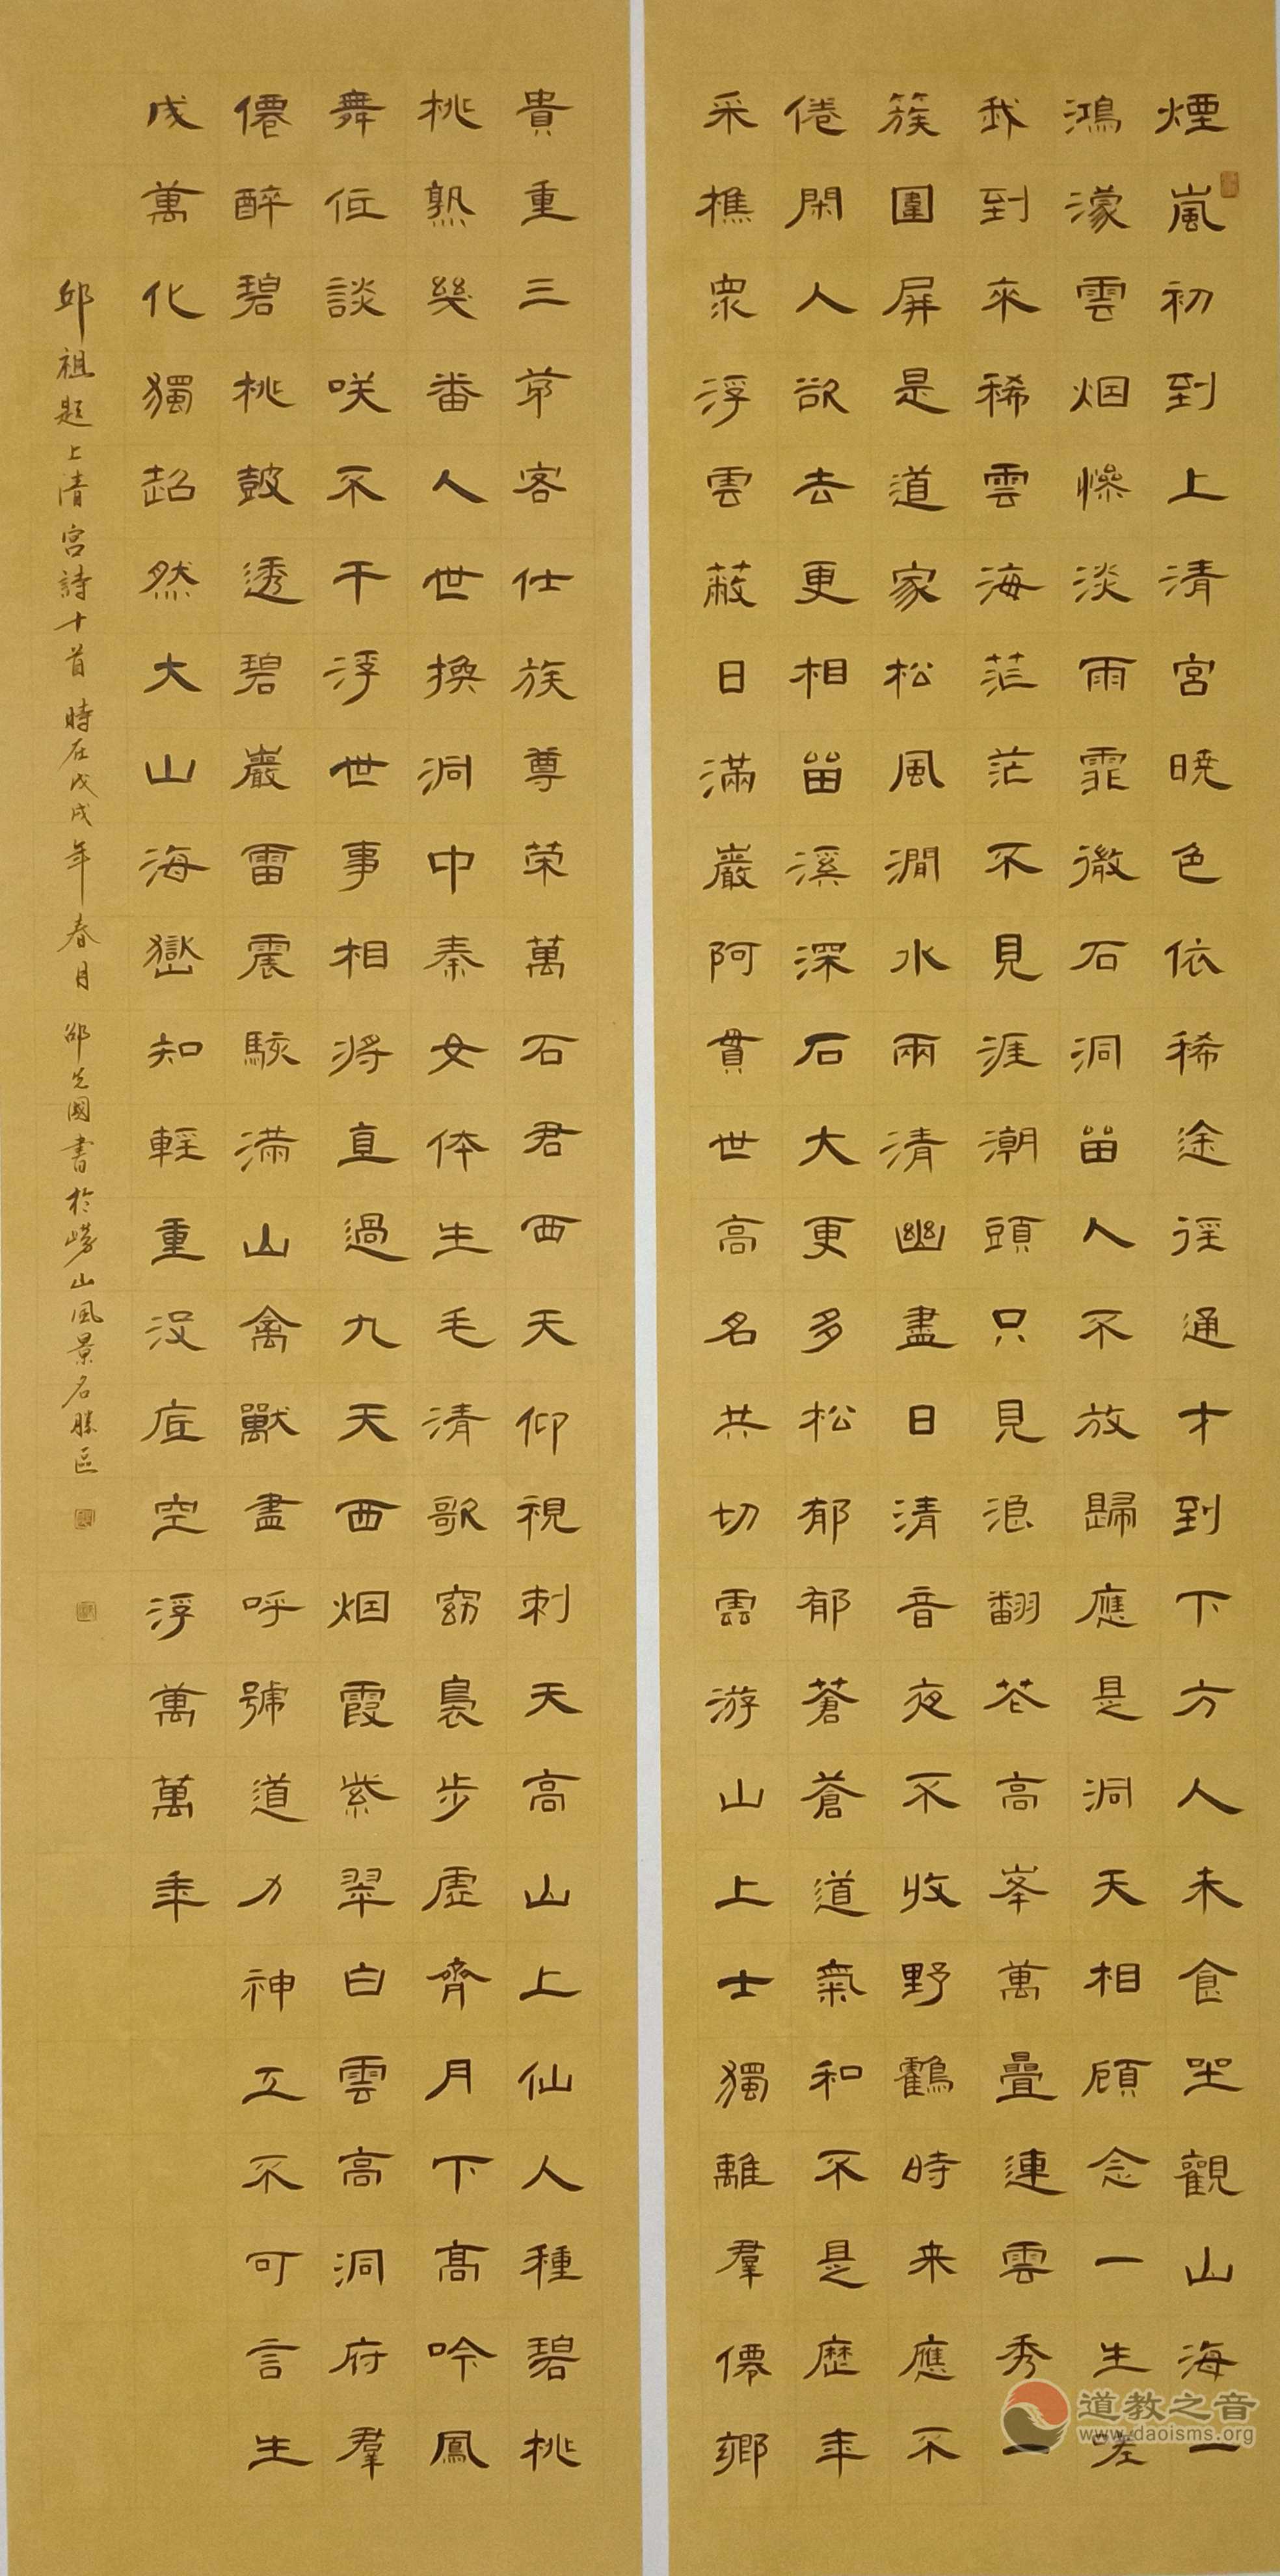 煙嵐初到上清宮曉色依稀途徑通才到下方人未食坐觀山海一
鴻濛雲烟慘淡雨霏微石洞留人不放歸應是洞天相顧念一生嗟
我到來稀雲海茫茫不見涯潮頭只見浪翻花高峯萬疊連雲秀一
簇圍屏是道家松風澗水兩清幽盡日清音夜不收野鶴時来應不
倦閑人欲去更相留溪深石大更多松郁郁蒼蒼道氣和不是歷年
采樵衆浮雲蔽日滿巖阿貫世高名共切雲游山上士獨離羣僊鄉
貴重三等客仕族尊荣萬石君西天仰視刺天高山上仙人種碧桃
桃熟幾番人世換洞中秦女体生毛清歌窈裊步虛齊月下高吟鳳
舞低談咲不干浮世事相將直過九天西烟霞紫翠白雲高洞府羣
僊醉碧桃鼓透碧巖雷震駭滿山禽獸盡呼號道力神工不可言生
成萬化獨超然大山海嶽知輕重沒底空浮萬萬年
邱祖題上清宮詩十首 時在戊戌年春月 邵先國書於嶗山風景名勝區
道教之音
www.daoisms.org